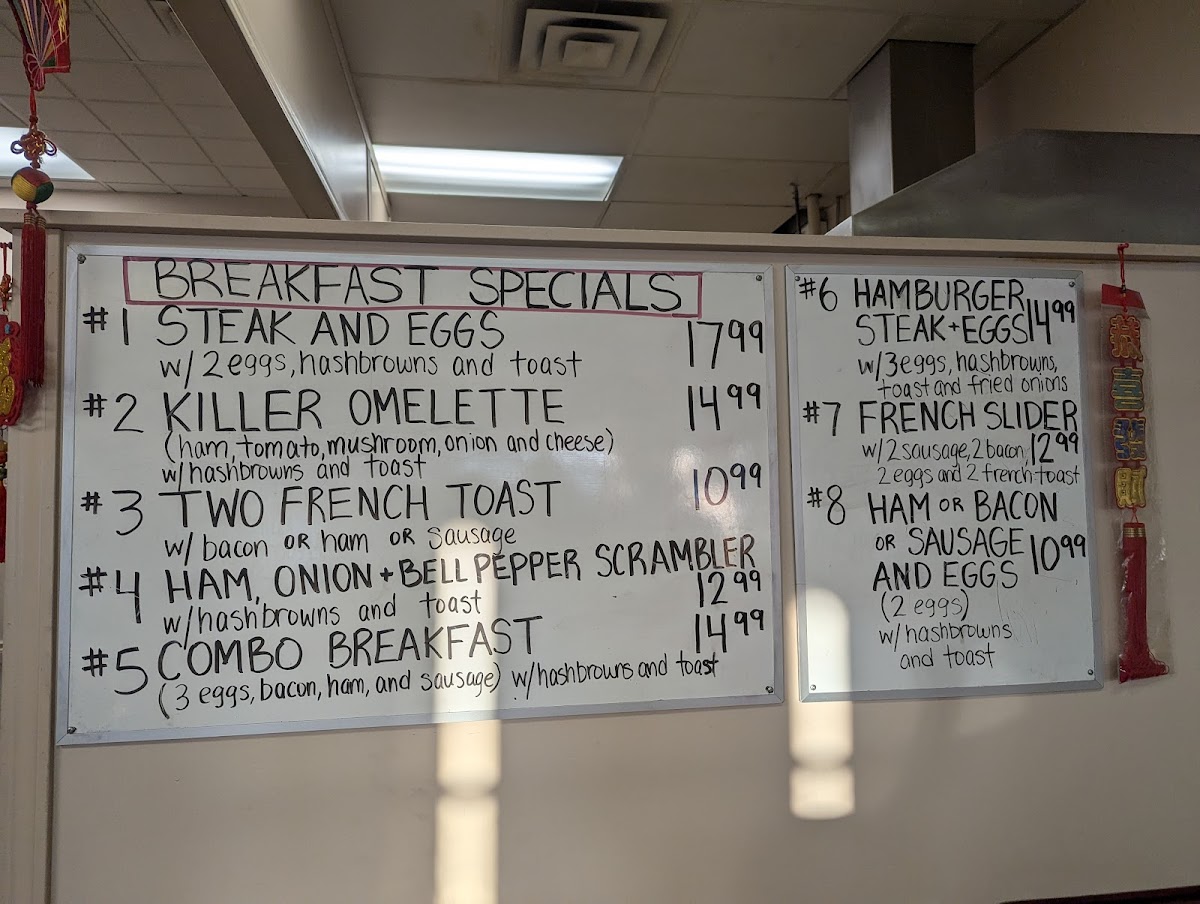 BREAKFAST SPECIALS
#1 STEAK AND EGGS 17.99
w/2 eggs, hashbrowns and toast
#2 KILLER OMELETTE 14.99
(ham, tomato, mushroom, onion and cheese)
w/hashbrowns and toast
#3 TWO FRENCH TOAST 10.99
w/ bacon OR ham OR sausage
#4 HAM, ONION + BELL PEPPER SCRAMBLER
w/hashbrowns and toast 12.99
#5 COMBO BREAKFAST 14.99
(3 eggs, bacon, ham, and sausage) w/hashbrowns and toast
#6 HAMBURGER
STEAK + EGGS 14.99
w/3 eggs, hashbrowns,
toast and fried onions
#7 FRENCH SLIDER
w/2 sausage, 2 bacon, 12.99
2 eggs and 2 french toast
#8 HAM OR BACON
OR SAUSAGE 10.99
AND EGGS
(2 eggs)
w/hashbrowns
and toast
恭
喜
發
財